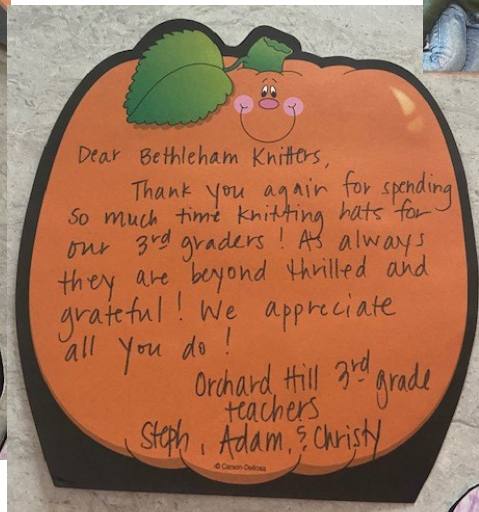 Dear Bethleham Knitters,
Thank you again for spending
so much time knitting hats for
our 3rd graders! As always
they are beyond thrilled and
grateful! We appreciate
all you do!
Orchard Hill 3rd grade
teachers
Steph, Adam, & Christy
© Carson-Dellosa